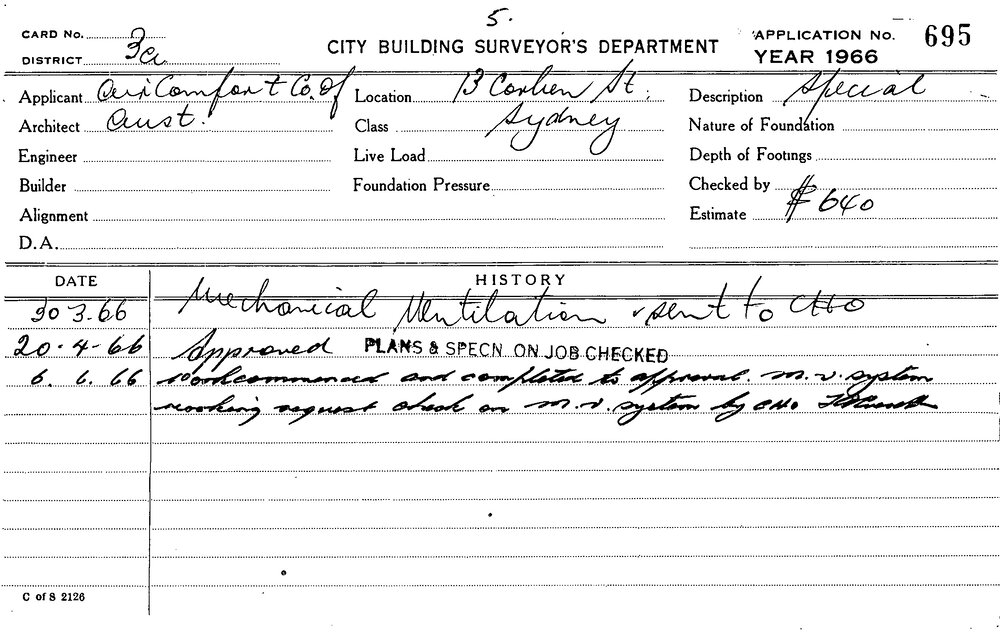 5.
CARD No.
DISTRICT 3a
CITY BUILDING SURVEYOR'S DEPARTMENT
APPLICATION No. 695
YEAR 1966
Applicant Air Comfort Co. of Location 13 Corben St. Description Special
Architect Aust. Class Sydney Nature of Foundation
Engineer Live Load Depth of Footings
Builder Foundation Pressure Checked by
Alignment Estimate $ 640
D.A.
DATE HISTORY
30 3.66 Mechanical Ventilation & sent to CHO
20-4-66 Approved PLANS & SPECN ON JOB CHECKED
6. 6. 66 work commenced and completed to approval. M.V. system
working request check on M.V. system by CHO
C of S 2126